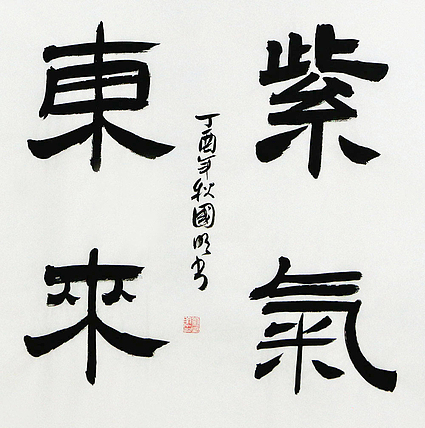 紫氣
東來
丁酉年秋國明書